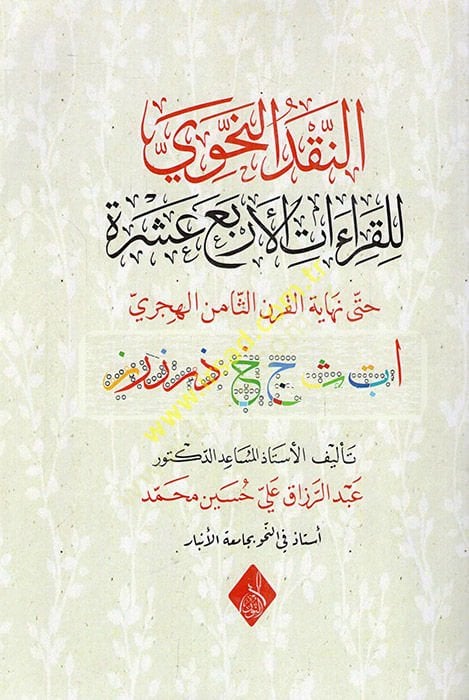 النَّقْدُ النَّحْوِيّ
لِلقِرَاءَاتِ الأَرْبَعَ عَشْرَةَ
حتّى نهاية القرن الثامن الهجريّ
ا ب ت ث ج خ ذ ر ز
تأليف الأستاذ المساعد الدكتور
عبد الرزاق علي حسين محمد
أستاذ في النحو بجامعة الأنبار